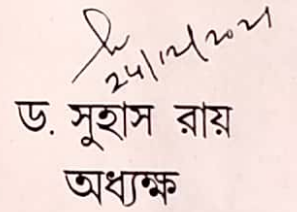 24/12/2021
ড. সুহাস রায়
অধ্যক্ষ